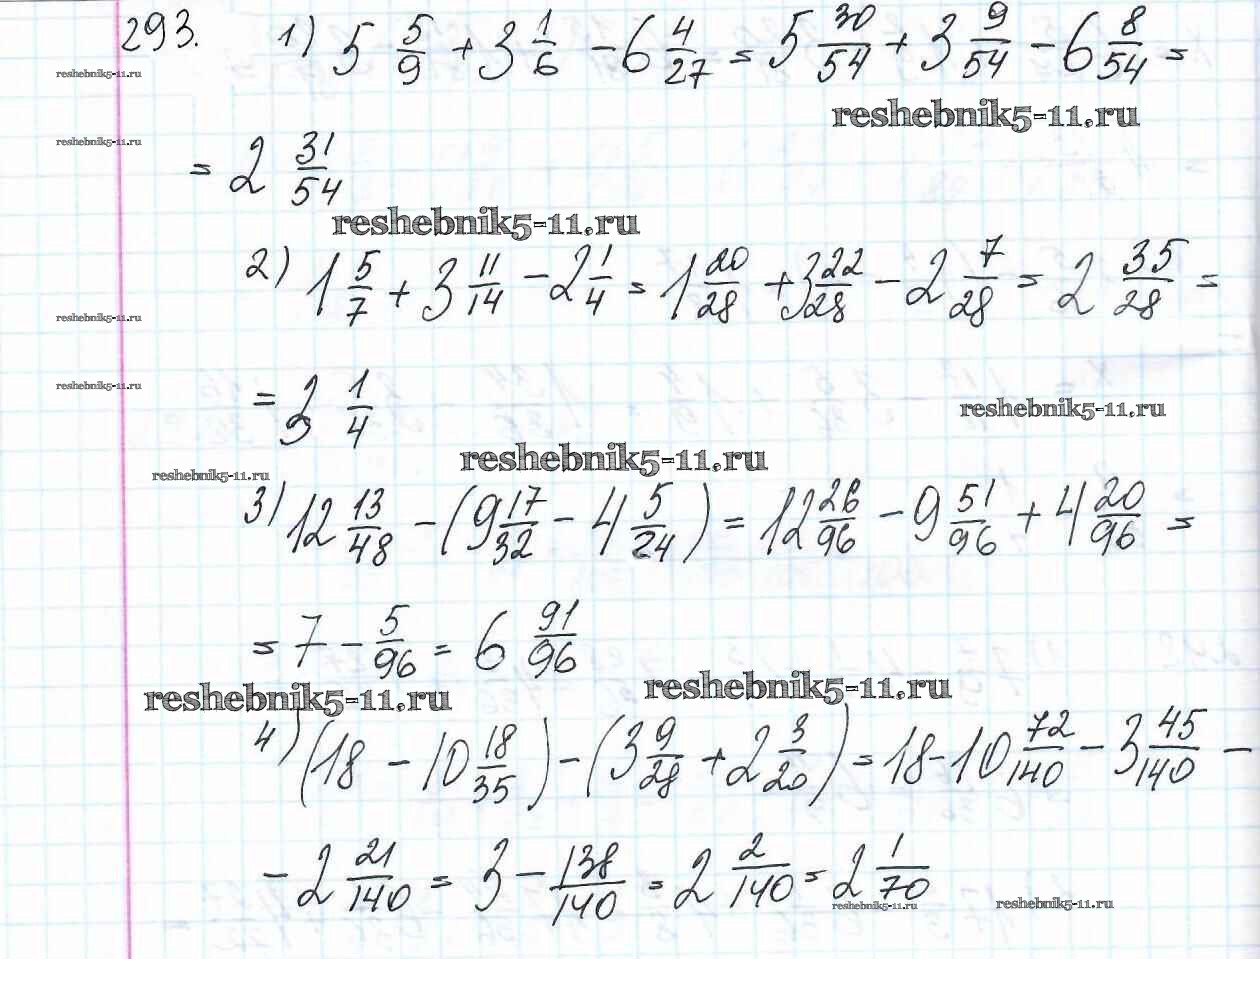 293. 1) 5 5/9 + 3 1/6 - 6 4/27 = 5 30/54 + 3 9/54 - 6 8/54 =
reshebnik5-11.ru
reshebnik5-11.ru
reshebnik5-11.ru
= 2 31/54
reshebnik5-11.ru
2) 1 5/7 + 3 11/14 - 2 1/4 = 1 20/28 + 3 22/28 - 2 7/28 = 2 35/28 =
reshebnik5-11.ru
reshebnik5-11.ru
= 3 1/4
reshebnik5-11.ru
reshebnik5-11.ru
reshebnik5-11.ru
3) 12 13/48 - (9 17/32 - 4 5/24) = 12 26/96 - 9 51/96 + 4 20/96 =
= 7 - 5/96 = 6 91/96
reshebnik5-11.ru
reshebnik5-11.ru
4) (18 - 10 18/35) - (3 9/28 + 2 3/20) = 18 - 10 72/140 - 3 45/140 -
- 2 21/140 = 3 - 138/140 = 2 2/140 = 2 1/70
reshebnik5-11.ru
reshebnik5-11.ru